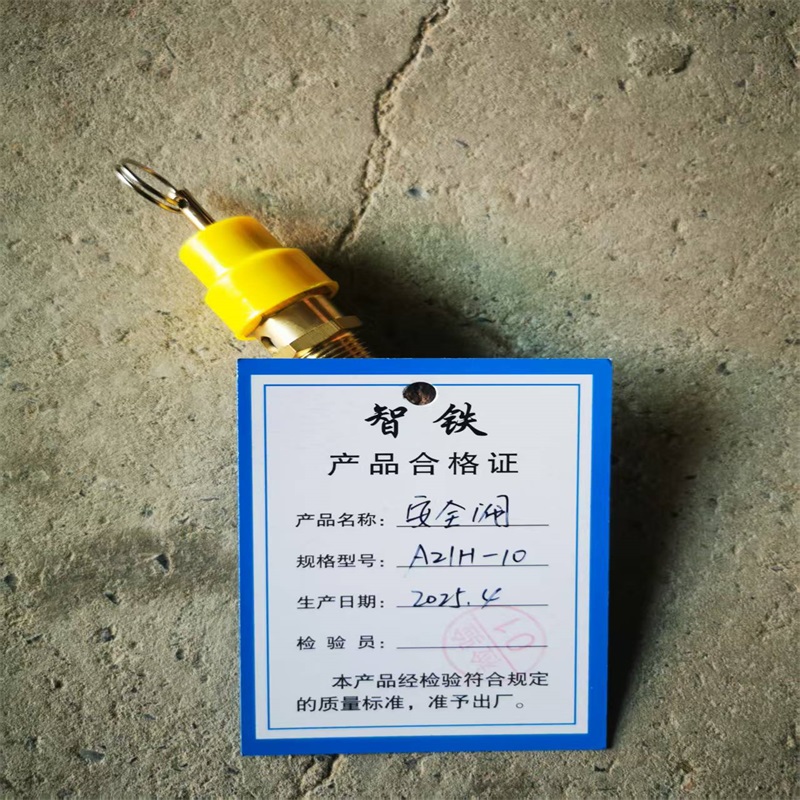 智铁
产品合格证
产品名称：安全阀
规格型号：A21H-10
生产日期：2025.4
检验员：
检验 01
本产品经检验符合规定
的质量标准，准予出厂。